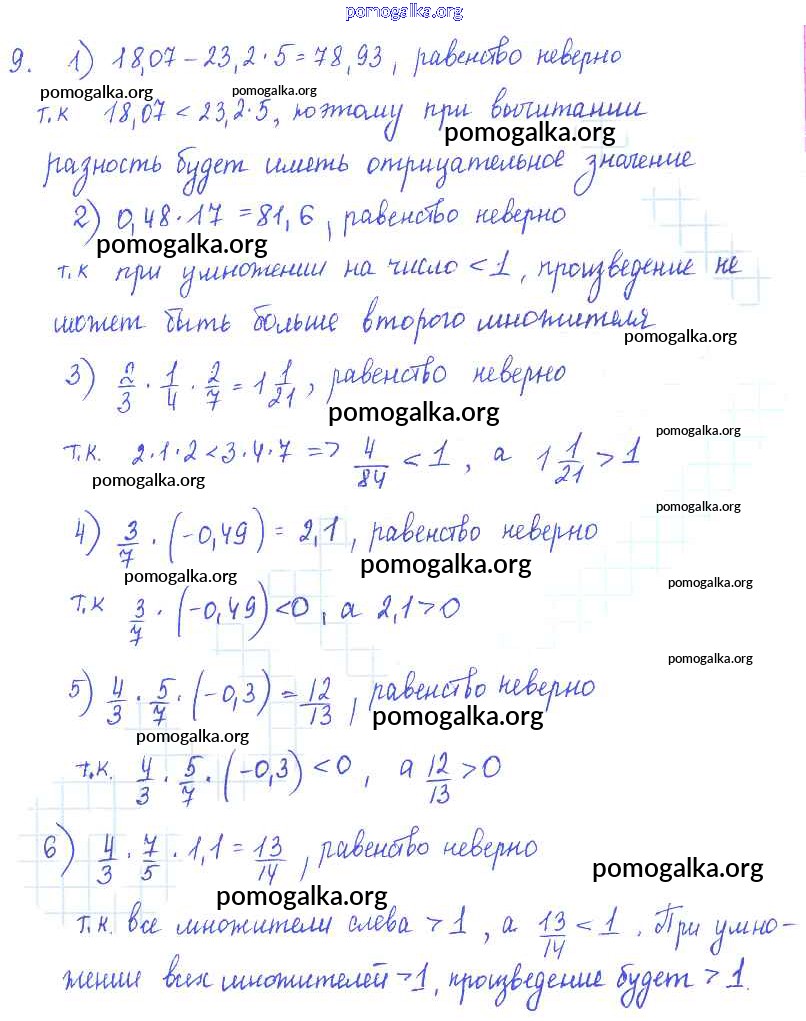 pomogalka.org
9. 1) 18,07 − 23,2 · 5 = 78,93, равенство неверно
pomogalka.org pomogalka.org
т.к 18,07 < 23,2·5, поэтому при вычитании
pomogalka.org
разность будет иметь отрицательное значение
2) 0,48 · 17 = 81,6, равенство неверно
pomogalka.org
т.к при умножении на число < 1, произведение не
может быть больше второго множителя
pomogalka.org
3) 2/3 · 1/4 · 2/7 = 1 1/21, равенство неверно
pomogalka.org
pomogalka.org
т.к. 2·1·2 < 3·4·7 => 4/84 < 1, а 1 1/21 > 1
pomogalka.org
pomogalka.org
4) 3/7 · (−0,49) = 2,1, равенство неверно
pomogalka.org
pomogalka.org pomogalka.org
т.к 3/7 · (−0,49) < 0, а 2,1 > 0
pomogalka.org
5) 4/3 · 5/7 · (−0,3) = 12/13, равенство неверно
pomogalka.org
pomogalka.org
т.к. 4/3 · 5/7 · (−0,3) < 0, а 12/13 > 0
6) 4/3 · 7/5 · 1,1 = 13/14, равенство неверно
pomogalka.org
pomogalka.org
т.к. все множители слева > 1, а 13/14 < 1. При умно-
жении всех множителей > 1, произведение будет > 1.